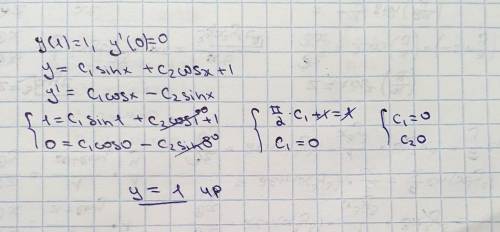 y(1)=1, y'(0)=0
y = c₁sinx + c₂cosx + 1
y' = c₁cosx - c₂sinx
{ 1 = c₁sin1 + c₂cos1⁰ + 1
0 = c₁cos0 - c₂sin0⁰
{ π/2 · c₁ + 1 = 1
c₁ = 0
{ c₁ = 0
c₂0
y = 1 чр